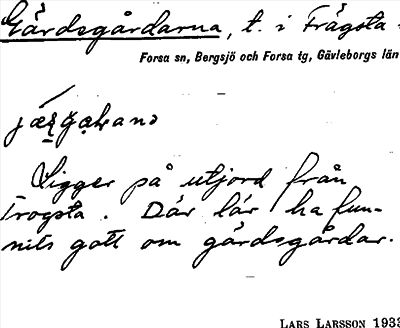 Gärdsgårdarna, t. i Frågsta.
Forsa sn, Bergsjö och Forsa tg, Gävleborgs län
Ligger på utjord från
Trogsta. Där lär ha fun-
nits gott om gärdsgårdar.
LARS LARSSON 1933